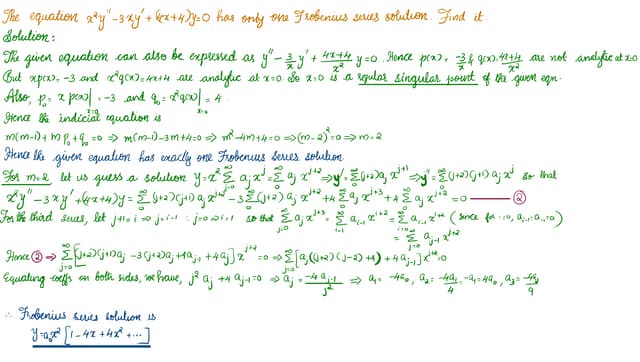 The equation x²y″-3xy′+(4x+4)y=0 has only one Frobenius series solution. Find it.
Solution:
The given equation can also be expressed as y″-3/x y′+(4x+4)/x² y=0. Hence p(x)=-3/x & q(x)=(4x+4)/x² are not analytic at x=0
But xp(x)=-3 and x²q(x)=4x+4 are analytic at x=0 So x=0 is a regular singular point of the given eqn.
Also, p₀ = x p(x)|ₓ₌₀ = -3 and q₀ = x²q(x)|ₓ₌₀ = 4.
Hence the indicial equation is
m(m-1)+mp₀+q₀=0 ⇒ m(m-1)-3m+4=0 ⇒ m²-4m+4=0 ⇒ (m-2)²=0 ⇒ m=2
Hence the given equation has exactly one Frobenius series solution.
For m=2 let us guess a solution y=x² ∑_{j=0}^∞ a_j x^j = ∑_{j=0}^∞ a_j x^{j+2} ⇒ y′=∑_{j=0}^∞ (j+2)a_j x^{j+1} ⇒ y″=∑_{j=0}^∞ (j+2)(j+1)a_j x^j so that
x²y″-3xy′+(4x+4)y=∑_{j=0}^∞ (j+2)(j+1)a_j x^{j+2} -3∑_{j=0}^∞ (j+2)a_j x^{j+2} +4∑_{j=0}^∞ a_j x^{j+3} +4∑_{j=0}^∞ a_j x^{j+2} =0 — ②
For the third series, let j+1=i ⇒ j=i-1 ∴ j=0 ⇒ i=1 so that ∑_{j=0}^∞ a_j x^{j+3} = ∑_{i=1}^∞ a_{i-1} x^{i+2} = ∑_{i=0}^∞ a_{i-1} x^{i+2} (since for i=0, a_{i-1}=a_{-1}=0)
= ∑_{j=0}^∞ a_{j-1} x^{j+2}
Hence ② ⇒ ∑_{j=0}^∞ [(j+2)(j+1)a_j -3(j+2)a_j +4a_{j-1} +4a_j] x^{j+2} =0 ⇒ ∑_{j=0}^∞ [a_j((j+2)(j-2)+4) +4a_{j-1}] x^{j+2} =0
Equating coeffs on both sides, we have, j² a_j +4a_{j-1}=0 ⇒ a_j = -4a_{j-1}/j² ⇒ a₁=-4a₀, a₂=-4a₁/4=-a₁=4a₀, a₃=-4a₂/9
∴ Frobenius series solution is
y=a₀x²[1-4x+4x²+⋯]